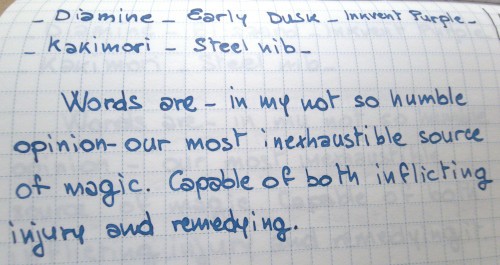 - Diamine - Early Dusk - Inkvent Purple -
- Kakimori - Steel nib -
Words are - in my not so humble
opinion - our most inexhaustible source
of magic. Capable of both inflicting
injury and remedying.